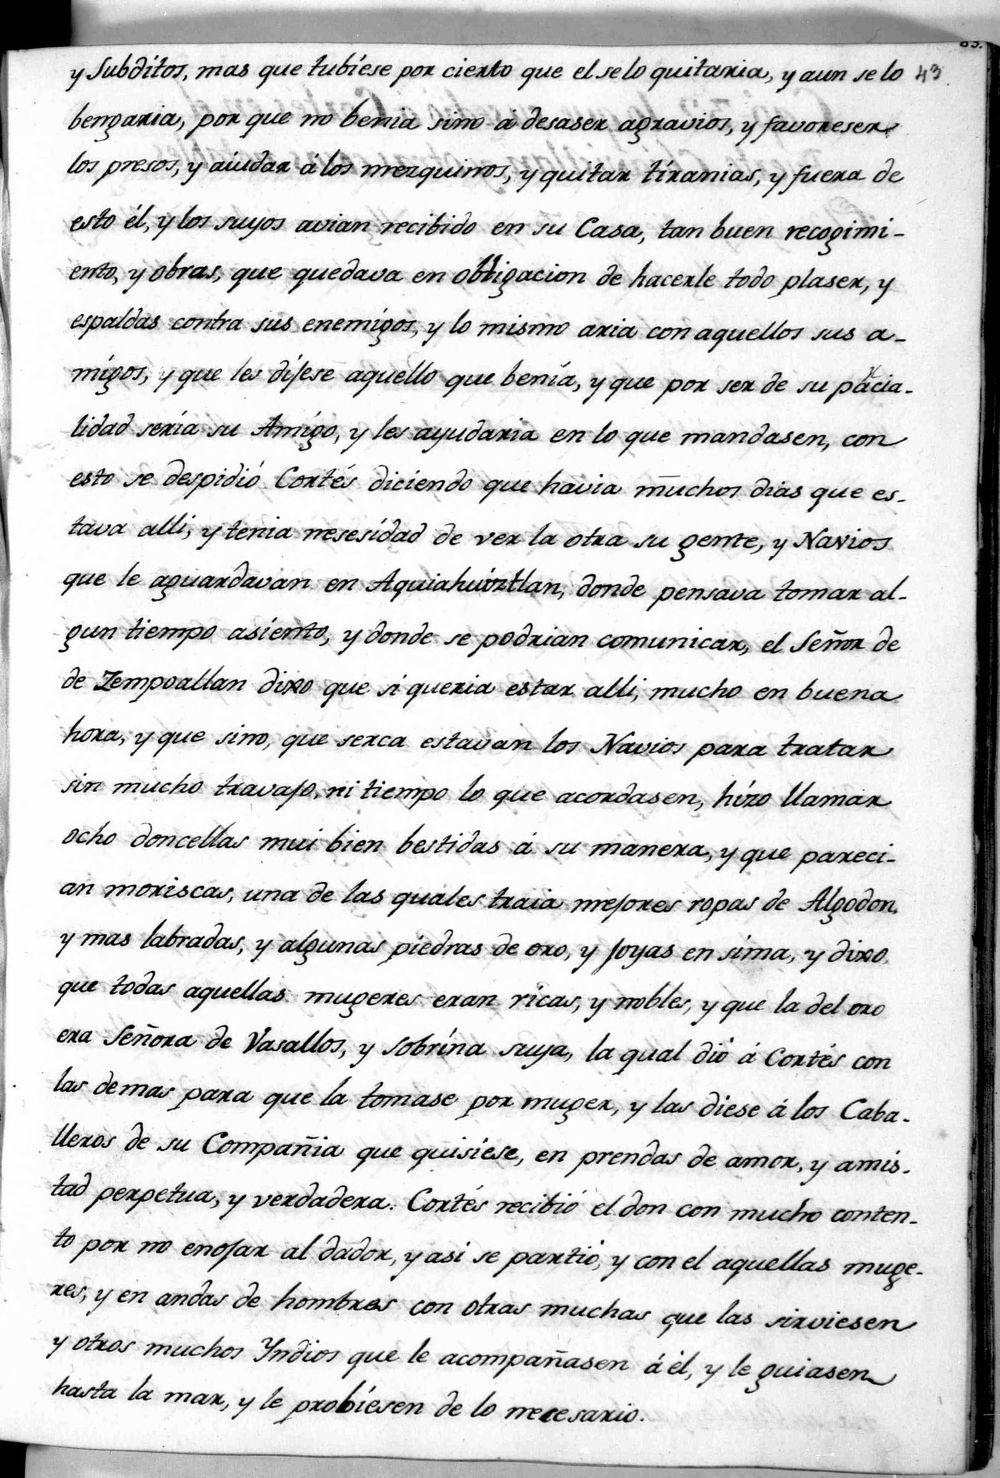 43
y Subditos, mas que tubiese por cierto que el se lo quitaria, y aun se lo
bengaria, por que no benia sino á desaser agravios, y favoreser
los presos, y aiudar á los mezquinos, y quitar tiranias, y fuera de
esto él, y los suyos avian recibido en su Casa, tan buen recogimi-
ento, y obras, que quedava en obligacion de hacerle todo plaser, y
espaldas contra sus enemigos, y lo mismo aria con aquellos sus a-
migos, y que les dijese aquello que benia, y que por ser de su parcia-
lidad sería su Amigo, y les ayudaria en lo que mandasen, con
esto se despidió Cortés diciendo que havia muchos dias que es-
tava alli, y tenia nesesidad de ver la otra su gente, y Navios
que le aguardavan en Aquiahuiztlan, donde pensava tomar al-
gun tiempo asiento, y donde se podrian comunicar, el Señor de
de Zempoallan dixo que si queria estar alli, mucho en buena
hora, y que sino, que serca estavan los Navios para tratar
sin mucho travajo, ni tiempo lo que acordasen, hizo llamar
ocho doncellas mui bien bestidas á su manera, y que pareci-
an moriscas, una de las quales traia mejores ropas de Algodon,
y mas labradas, y algunas piedras de oro, y joyas en sima, y dixo
que todas aquellas mugeres eran ricas, y nobles, y que la del oro
era Señora de Vasallos, y sobrina suya, la qual dió á Cortés con
las demas para que la tomase por muger, y las diese á los Caba-
lleros de su Compañia que quisiese, en prendas de amor, y amis-
tad perpetua, y verdadera. Cortés recibió el don con mucho conten-
to por no enojar al dador, y asi se partió, y con el aquellas muge-
res, y en andas de hombres con otras muchas que las sirviesen
y otros muchos Yndios que le acompañasen á él, y le guiasen
hasta la mar, y le probiesen de lo necesario.